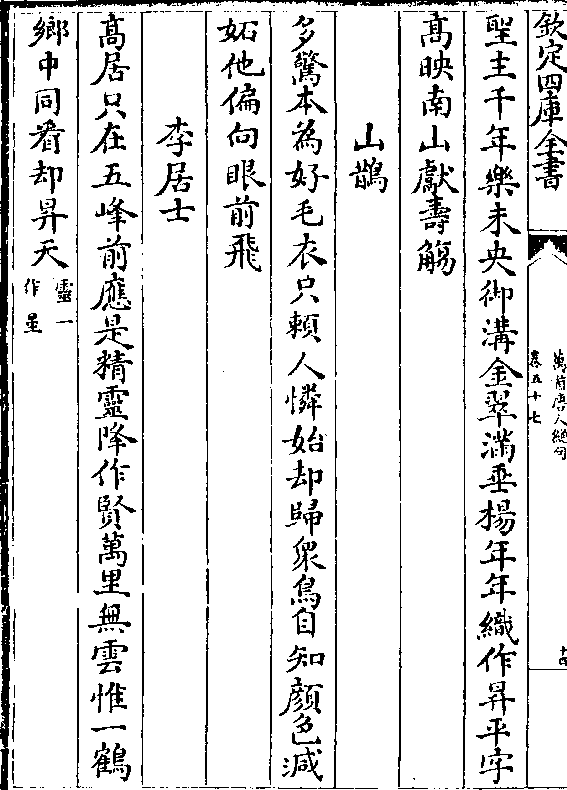 欽定四庫全書
萬首唐人絶句
卷五十七
十四
聖主千年樂未央御溝金翠滿垂楊年年織作昇平字
髙映南山獻壽觴
山鵲
多驚本為好毛衣只賴人憐始却歸衆鳥自知顔色減
妬他偏向眼前飛
李居士
髙居只在五峰前應是精靈降作賢萬里無雲惟一鶴
鄉中同看却昇天靈一作星